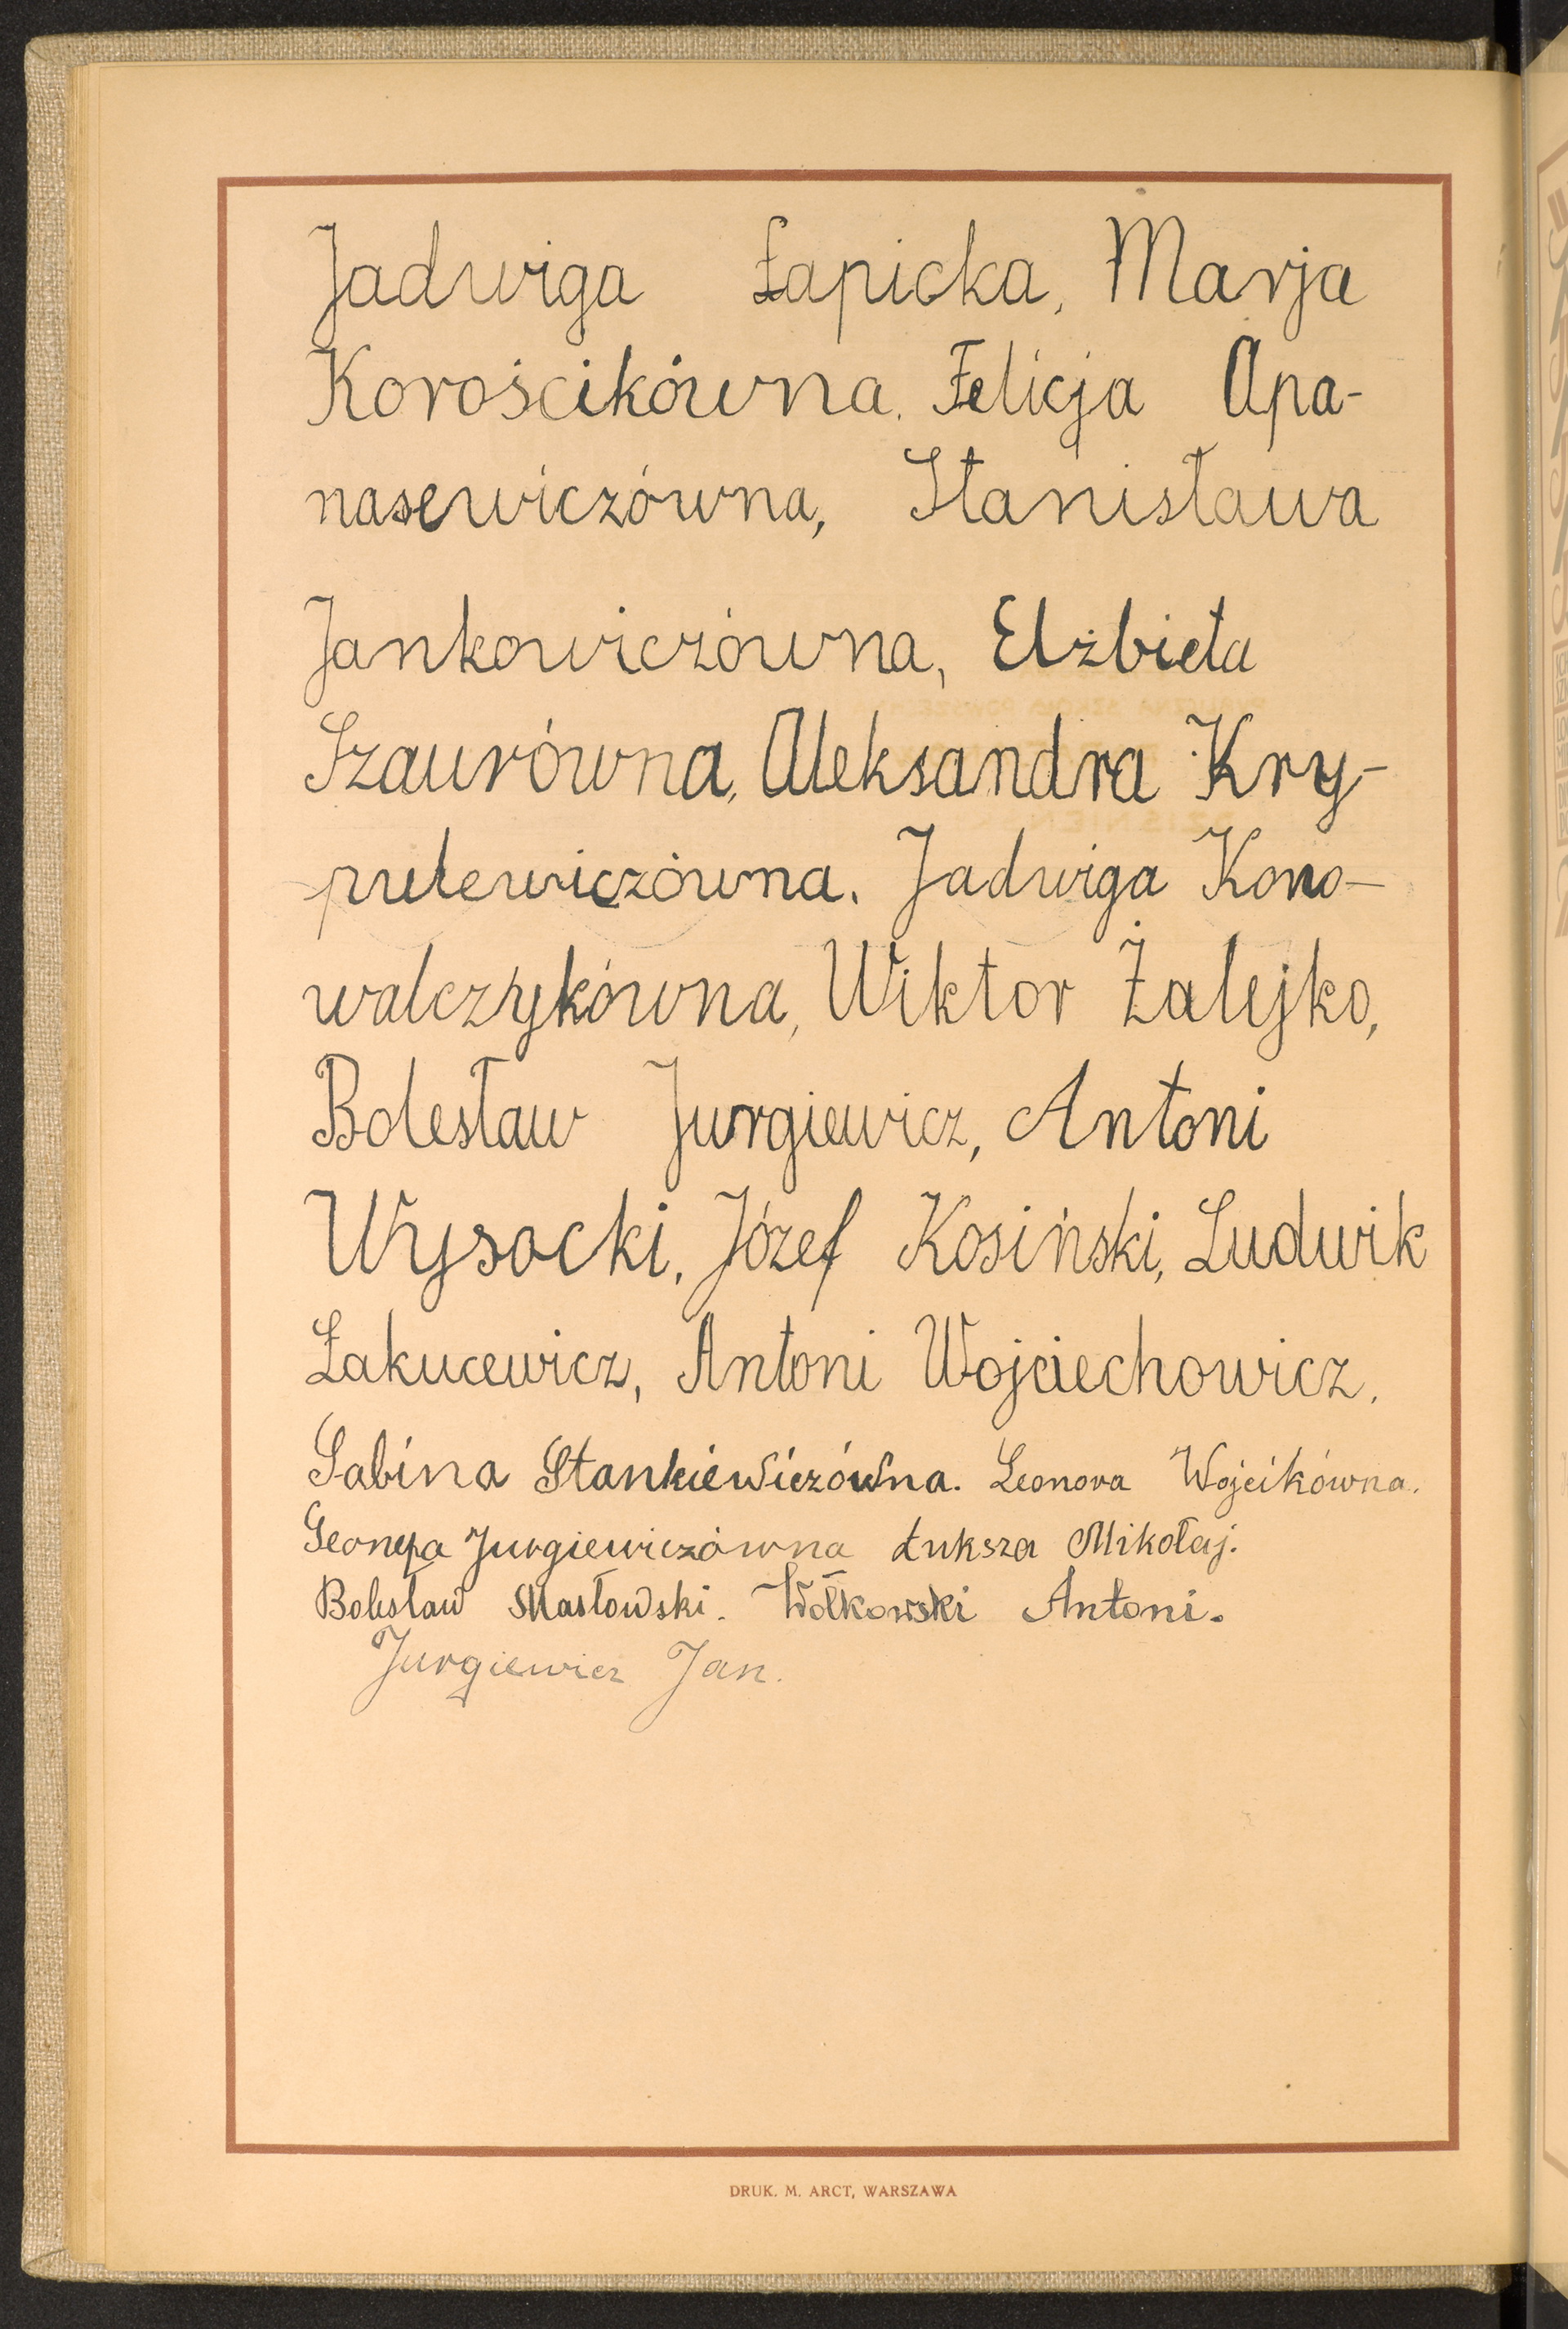 Jadwiga Łapicka, Marja
Korościkówna. Felicja Apa-
nasewiczówna, Stanisława
Jankowiczówna, Elżbieta
Szaurówna, Aleksandra Kry-
pulewiczówna. Jadwiga Kono-
walczykówna, Wiktor Żalejko,
Bolesław Jurgiewicz, Antoni
Wysocki, Józef Kosiński, Ludwik
Łakucewicz, Antoni Wojciechowicz.
Sabina Stankiewiczówna. Leonora Wojcikówna.
Jurgiewiczówna Łuksza Mikołaj.
Bolesław Masłowski. Wołkowski Antoni.
Jurgiewicz Jan.
DRUK. M. ARCT, WARSZAWA